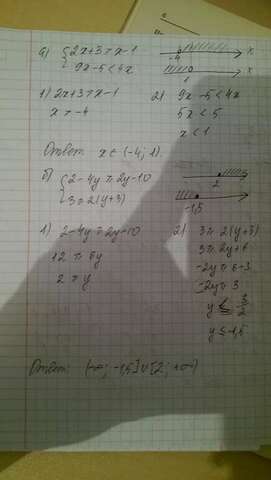 а) { 2x+3>x-1
9x-5<4x
-4 x
1 x
1) 2x+3>x-1
x>-4
2) 9x-5<4x
5x<5
x<1
Ответ: x∈(-4; 1).
б) { 2-4y≥2y-10
3≥2(y+3)
2
-1,5
1) 2-4y≥2y-10
12≥6y
2≥y
2) 3≥2(y+3)
3≥2y+6
-2y≥6-3
-2y≥3
y≤-3/2
y≤-1,5
Ответ: (-∞; -1,5]∪[2; +∞)